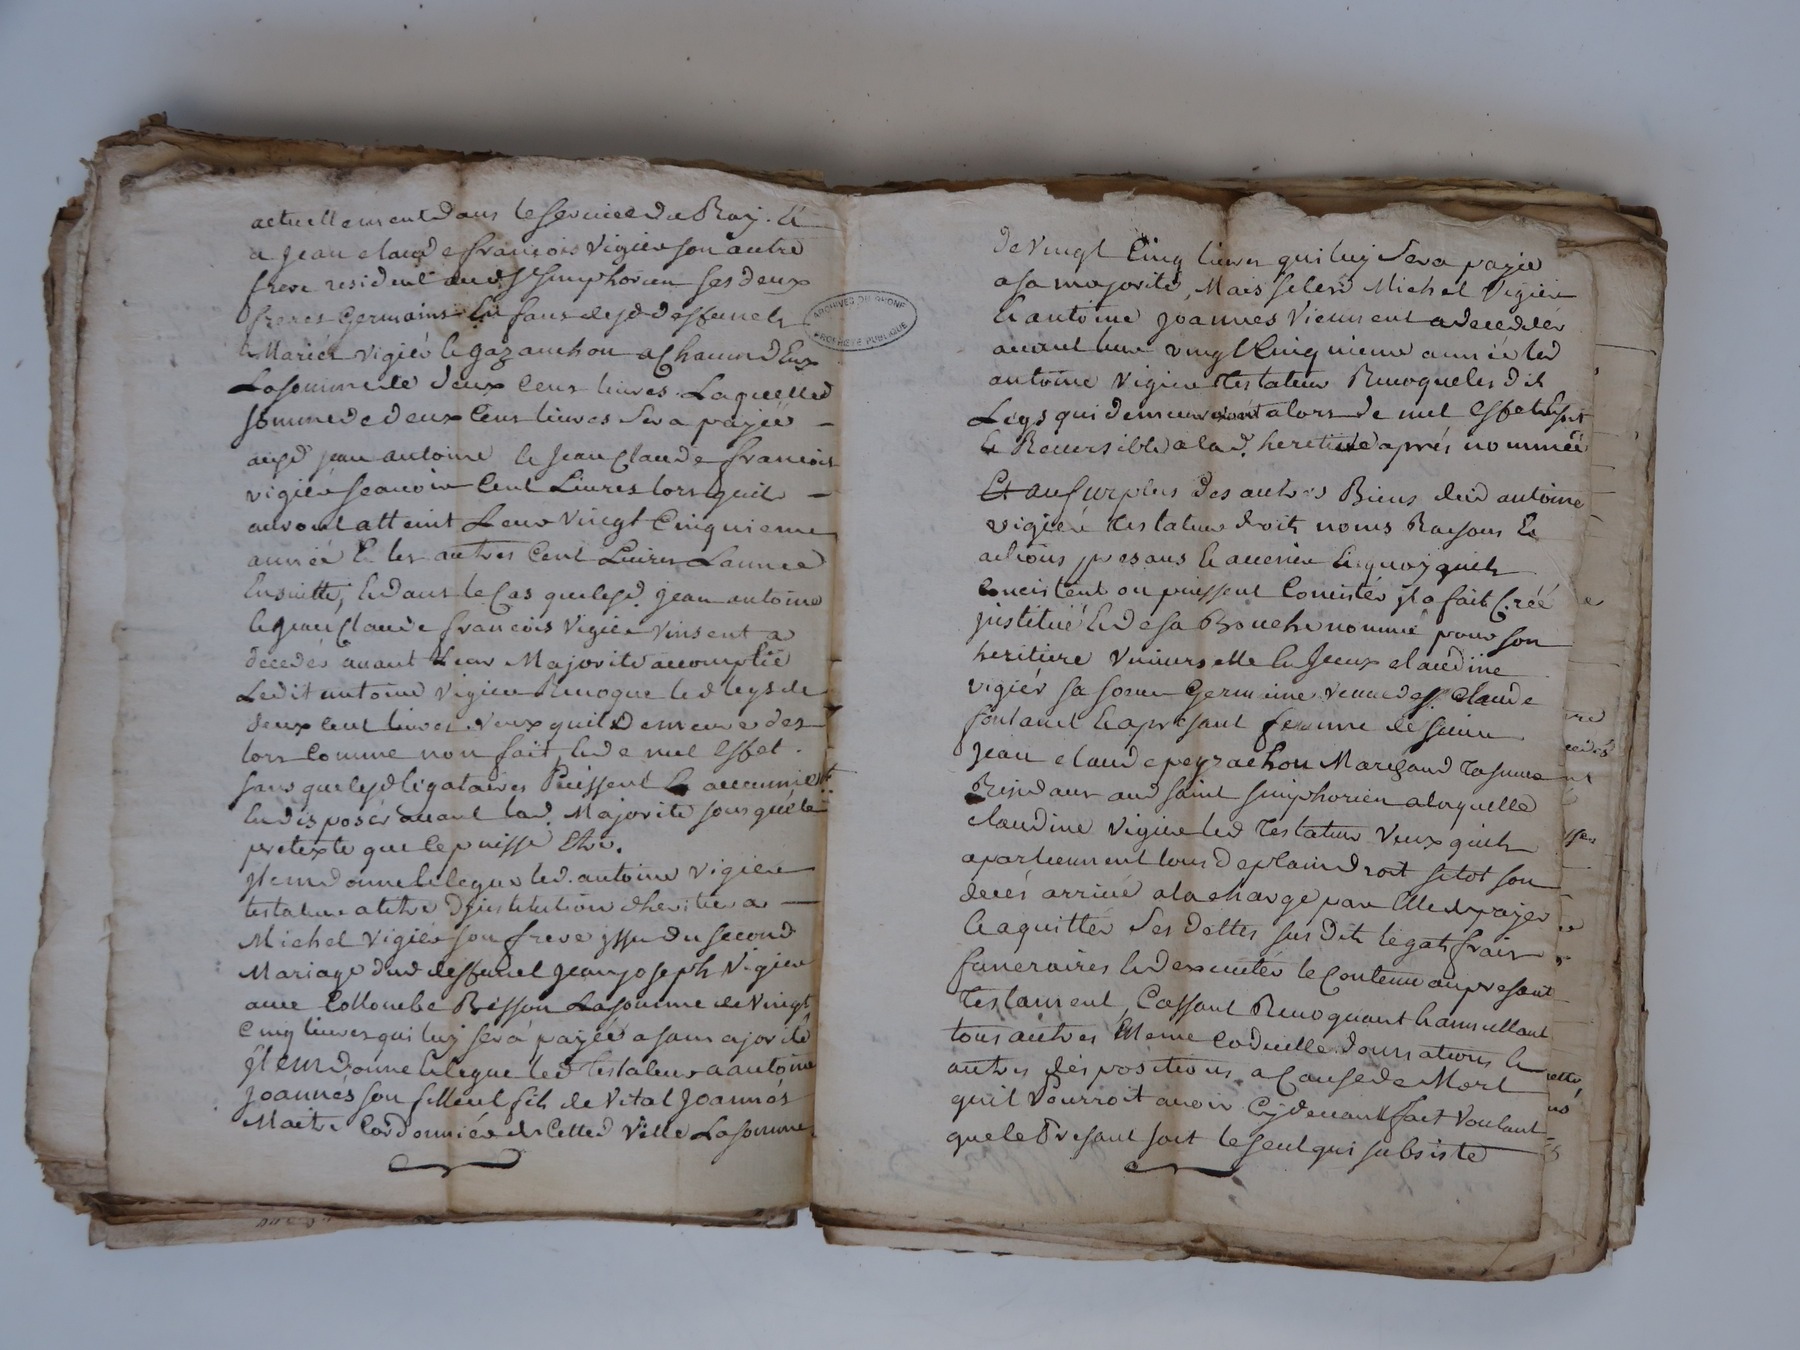 actuellement dans le service du Roy. Et
a Jean claude francois Vigier son autre
frere resident aud st simphorien ses deux
freres Germains Enfans desd deffunts
Mariés vigier et gazanchon a Chacun d'Eux
La somme de deux Cens livres. Laquelled
somme de deux Cens livres sera payée
ausd jean antoine et Jean Claude francois
vigier scavoir Cent Livres lors quils
auront atteint Leur vingt Cinquieme
année Et les autres Cent Livres Lannée
Ensuitte, et dans le Cas que lesd. jean antoine
et jean Claude francois Vigier vinsent a
decedés avant Leur Majorité accomplie
Ledit antoine vigier Revoque led legs de
deux cent livres. veux quil Demeure des
lors Comme non fait, et de nul Effet.
sans que lesd légataires Puissent
En disposér avant lad. Majorité sous quele
pretexte que ce puisse Etre.
Jtem donne et legue led. antoine vigier
testateur a titre D'jnstitution d'heritier a
Michel Vigier son frere jssu du second
Mariage dud deffunt Jean joseph Vigier
avec Collombe Brisson La somme de Vingt
Cinq livres qui luy sera payée a sa majorité
Jtem donne et legue led testateur a antoine
Joannés son filleul fils de Vital Joannés
Maitre Cordonniér de Cette d Ville La somme
ARCHIVES DU RHONE
PROPRIÉTÉ PUBLIQUE
de vingt Cinq livres qui luy sera payée
a sa majorité, Mais si lesd Michel Vigier
Et antoine Joannes Viennent a decedér
avant leur vingt Cinquieme année led
antoine Vigier Testateur Revoque lesdit
Legs qui demeureront alors de nul Effet
Et Reversible a lad. heritiere aprés nommée
Et au surplus des autres Biens dud antoine
vigier testateur droits noms Raisons Et
actions presans Et avenir En quoy quils
Concistent ou puissent Concister jl a fait Créé
jnstitué Et de sa Bouche nommé pour son
heritiere Vniverselle En Seux claudine
vigiér sa soeur Germaine veuve de sr claude
fontanel Et apresant femme de sieur
Jean claude peyrachon Marchand
Residant aud saint simphorien a laquelle
claudine vigier led Testateur Veux quils
apartiennent tous de plain droit sitot son
decés arrivé a la charge par Elle de payer
Et aquitter ses Dettes susdits legats frais
funeraires Et d'executér le Contenu au present
Testament, Cassant Revoquant Et annullant
tous autres Meme Codicille donnations Et
autres dispositions a Cause de Mort
quil Pourroit avoir Cy devant fait Voulant
que le Presant soit le seul qui subsiste